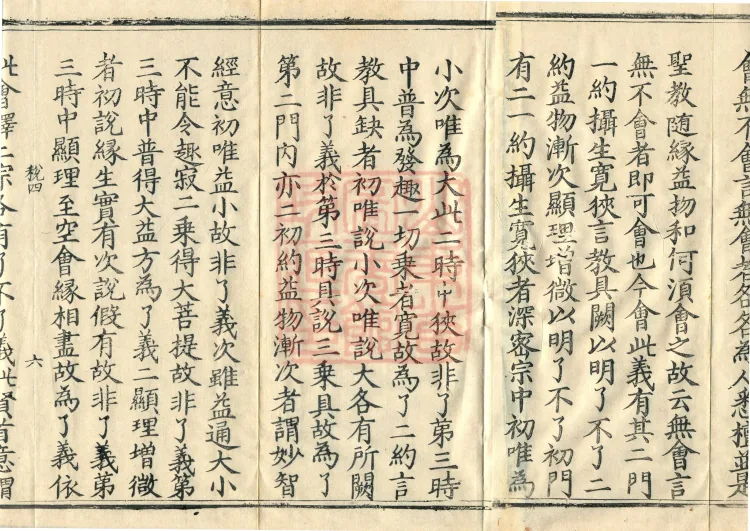 會無不會言無會者各各為人悉檀並是
聖教随縁益物和何湏會之故云無會言
無不會者即可會也今會此義有其二門
一約攝生寛狹言教具闕以明了不了二
約益物漸次顯理増微以明了不了初門
有二一約攝生寛狹者深密宗中初唯為
小次唯為大此二時中狹故非了第三時
中普為發趣一切乗者寛故為了二約言
教具缺者初唯説小次唯説大各有所闕
故非了義於第三時具説三乗具故為了
第二門内亦二初約益物漸次者謂妙智
經意初唯益小故非了義次雖益通大小
不能令趣寂二乗得大菩提故非了義第
三時中普得大益方為了義二顯理増微
者初說縁生實有次説假有故非了義第
三時中顯理至空會縁相盡故為了義依
税四
六
此會釋二宗各有了不了義此賢首意謂